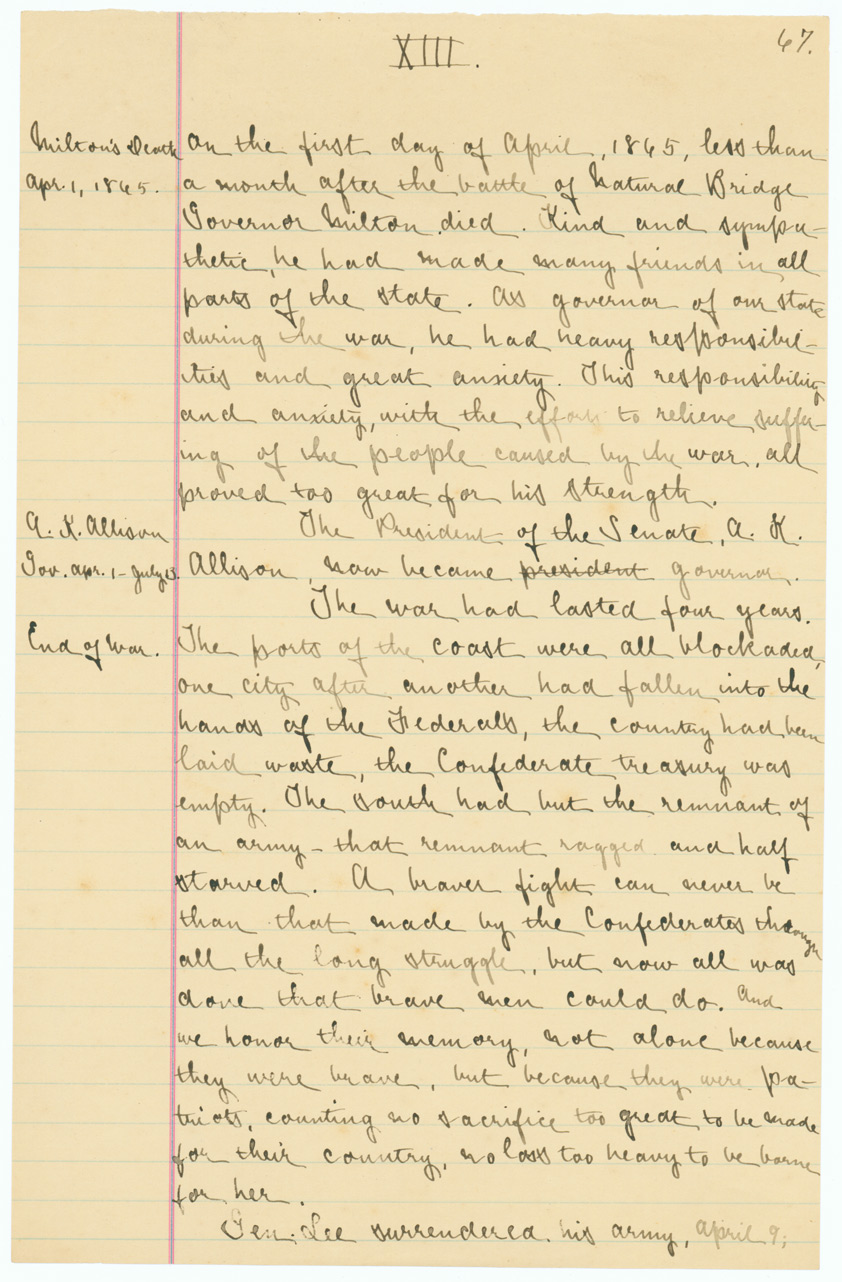 XIII.
67.
Milton's Death
Apr. 1, 1865.
On the first day of April, 1865, less than
a month after the battle of Natural Bridge
Governor Milton died. Kind and sympa-
thetic, he had made many friends in all
parts of the state. As governor of our state
during the war, he had heavy responsibili-
ties and great anxiety. This responsibility
and anxiety, with the efforts to relieve suffer-
ing of the people caused by the war, all
proved too great for his strength.
A. K. Allison
Gov. Apr. 1 - July 13.
The President of the Senate, A. K.
Allison, now became president governor.
The war had lasted four years.
End of War.
The ports of the coast were all blockaded,
one city after another had fallen into the
hands of the Federals, the country had been
laid waste, the Confederate treasury was
empty. The south had but the remnant of
an army - that remnant ragged and half
starved. A braver fight can never be
than that made by the Confederates through
all the long struggle, but now all was
done that brave men could do. And
we honor their memory, not alone because
they were brave, but because they were pa-
triots, counting no sacrifice too great to be made
for their country, no loss too heavy to be borne
for her.
Gen. Lee surrendered his army, April 9;